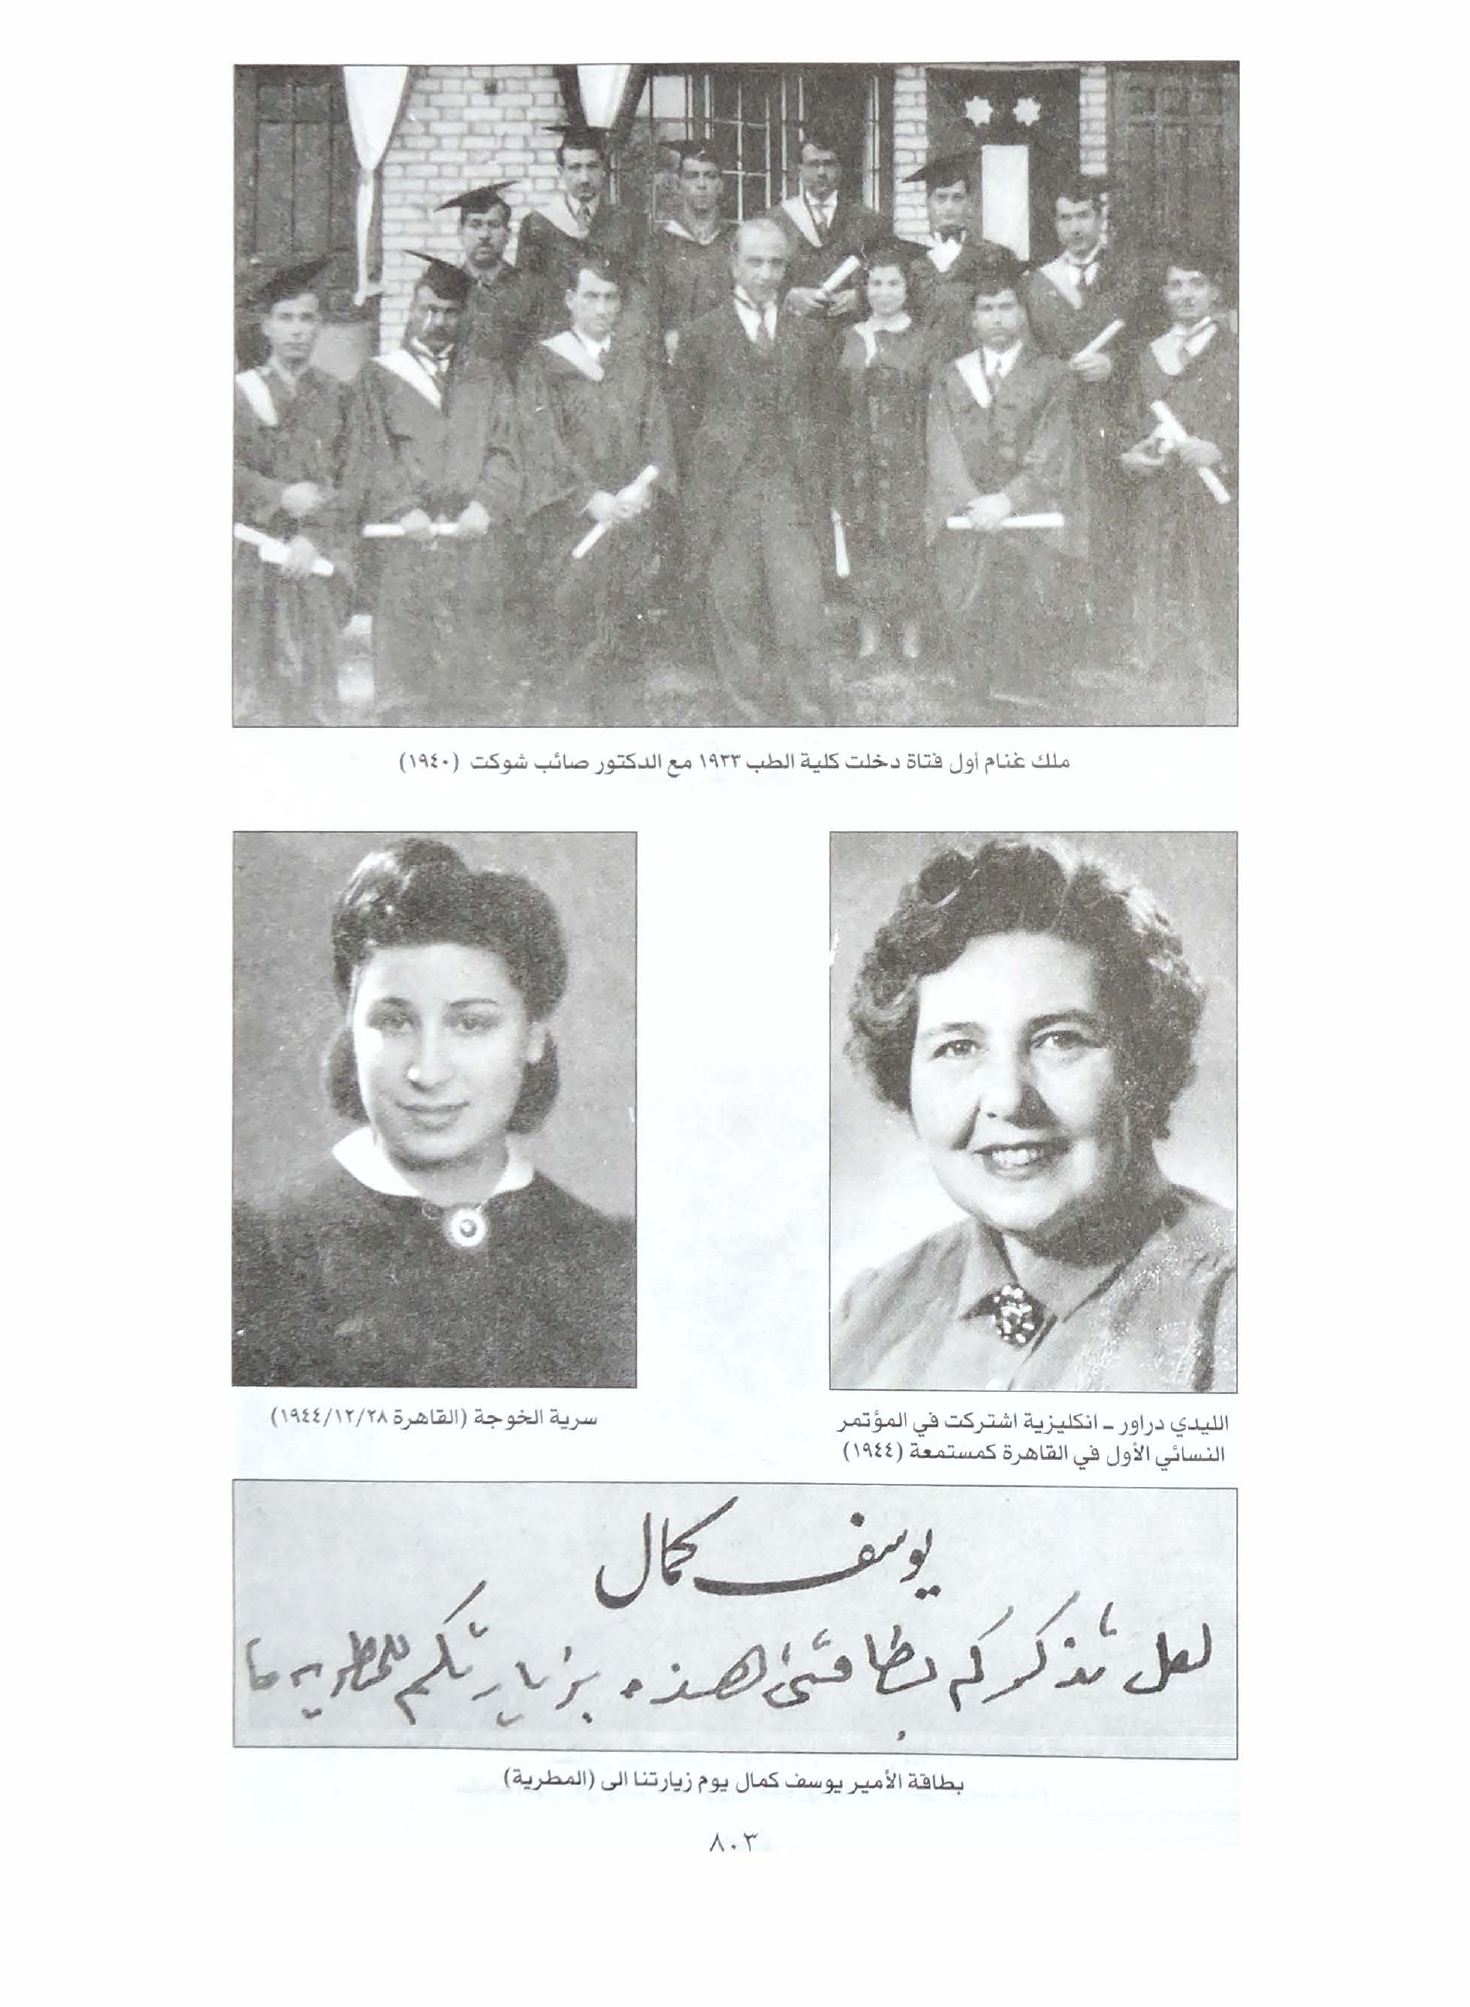 ملك غنام أول فتاة دخلت كلية الطب ١٩٣٣ مع الدكتور صائب شوكت (١٩٤٠)
الليدي دراور ــ انكليزية اشتركت في المؤتمر
النسائي الأول في القاهرة كمستمعة (١٩٤٤)
سرية الخوجة (القاهرة ١٩٤٤/١٢/٢٨)
يوسف كمال
لعل تذكركم بطاقتى هذه بزيارتكم للمطريه
بطاقة الأمير يوسف كمال يوم زيارتنا الى (المطرية)
٨٠٣